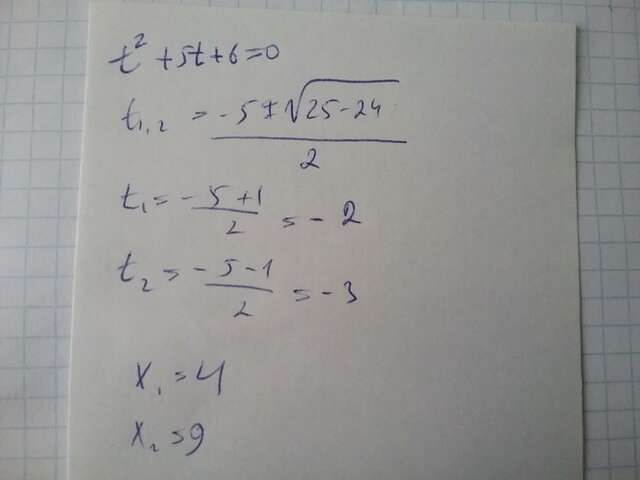 t² + 5t + 6 = 0
t₁,₂ = (-5 ± √(25 - 24)) / 2
t₁ = (-5 + 1) / 2 = -2
t₂ = (-5 - 1) / 2 = -3
x₁ = 4
x₂ = 9